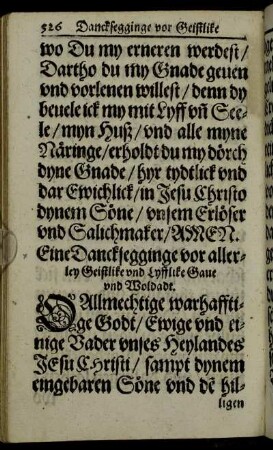 526 Dancksegginge vor Geistlike
wo Du my erneren werdest /
Dartho du my Gnade geuen
vnd vorlenen willest / denn dy
beuele ick my mit Lyff vñ See-
le / myn Huß / vnd alle myne
Näringe / erholdt du my dörch
dyne Gnade / hyr tydtlick vnd
dar Ewichlick / in Jesu Christo
dynem Söne / vnsem Erlöser
vnd Salichmaker / AMEN.
Eine Dancksegginge vor aller-
ley Geistlike vnd Lyfflike Gaue
vnd Woldadt.
O Allmechtige warhaffti-
ge Godt / Ewige vnd ei-
nige Vader vnses Heylandes
JEsu CHristi / sampt dynem
eingebaren Söne vnd dē hil-
ligen